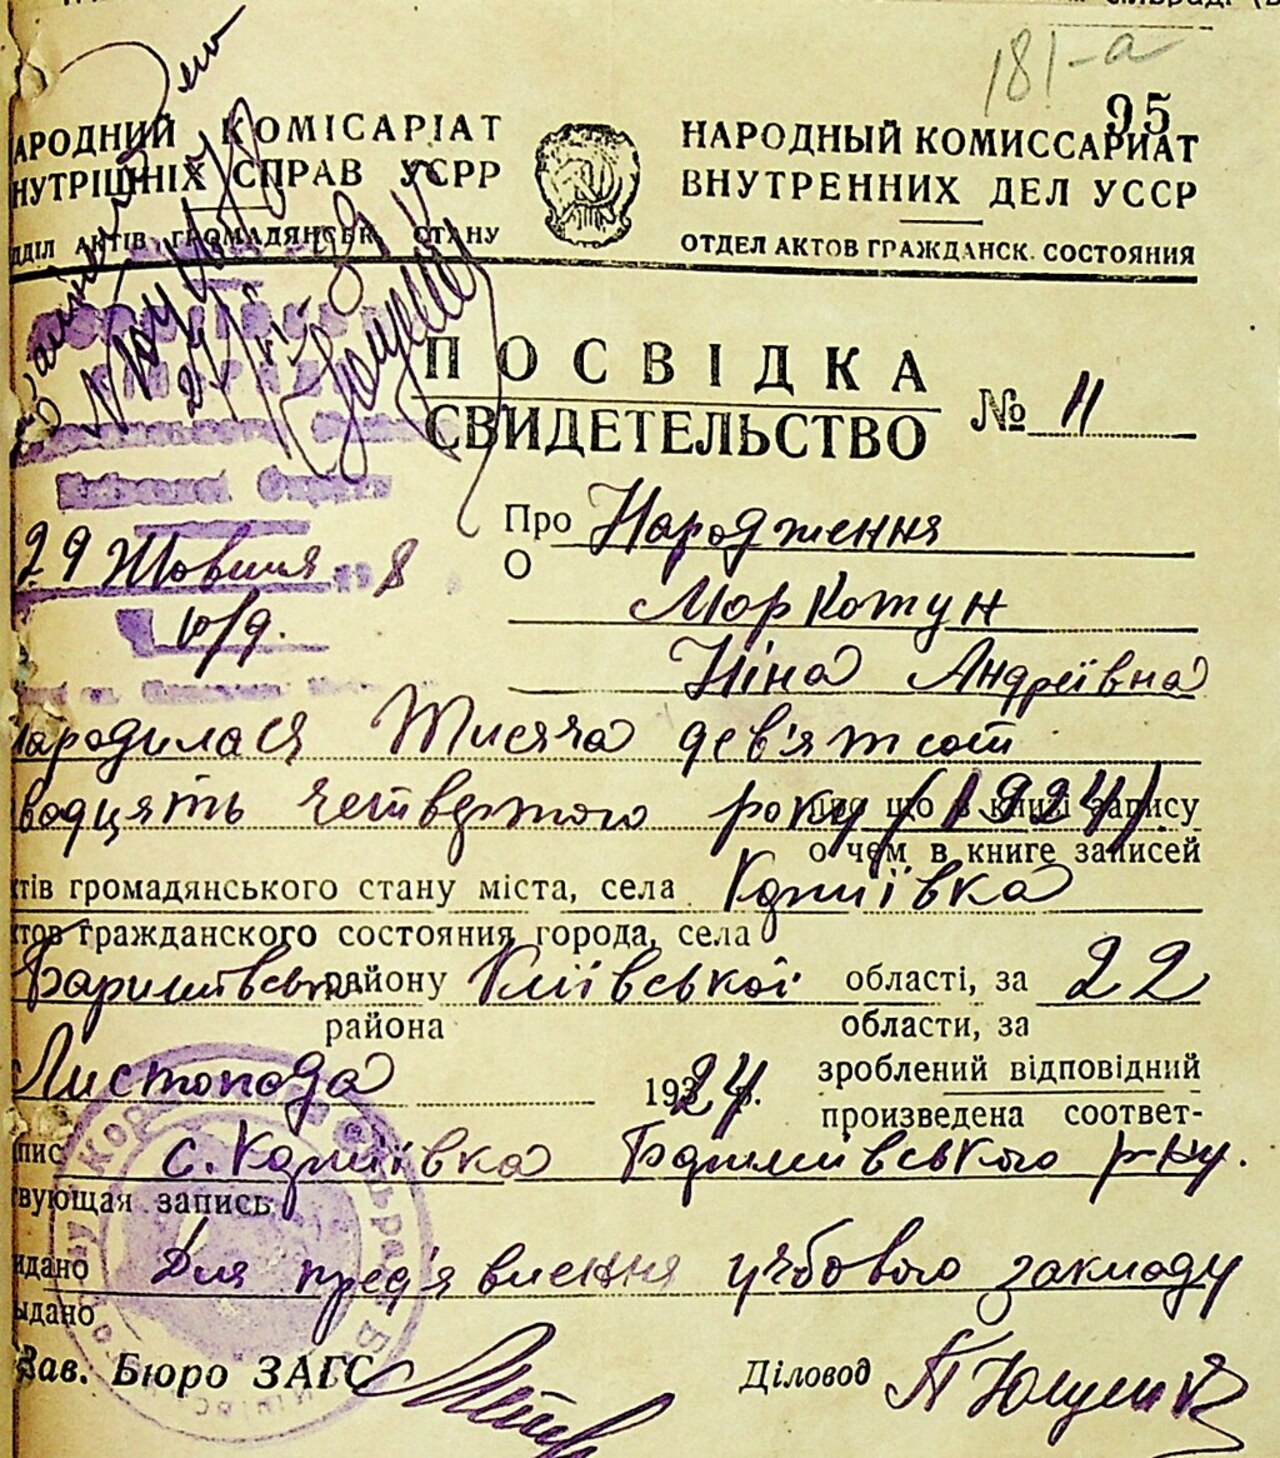 181-а
95
АРОДНИЙ КОМІСАРІАТ
НУТРІШНІХ СПРАВ УСРР
ДДІЛ АКТІВ ГРОМАДЯНСЬК. СТАНУ
НАРОДНЫЙ КОМИССАРИАТ
ВНУТРЕННИХ ДЕЛ УССР
ОТДЕЛ АКТОВ ГРАЖДАНСК. СОСТОЯНИЯ
ПОСВІДКА
СВИДЕТЕЛЬСТВО
№ 11
Про Народження
О
29 Жовтня 8
10/9.
Моркотун
Ніна Андріївна
народилася Тисяча дев'ятсот
водцять четвертого року (1924).
що в книзі запису
о чем в книге записей
тів громадянського стану міста, села
тов гражданского состояния города, села
Баришівськ району Київської області, за 22
района области, за
Листопада 1924 р. зроблений відповідний
произведена соответ-
пис с. Баришівського р-ну.
вующая запись
идано Для пред'явлення учбового закладу
ыдано
Зав. Бюро ЗАГС Діловод